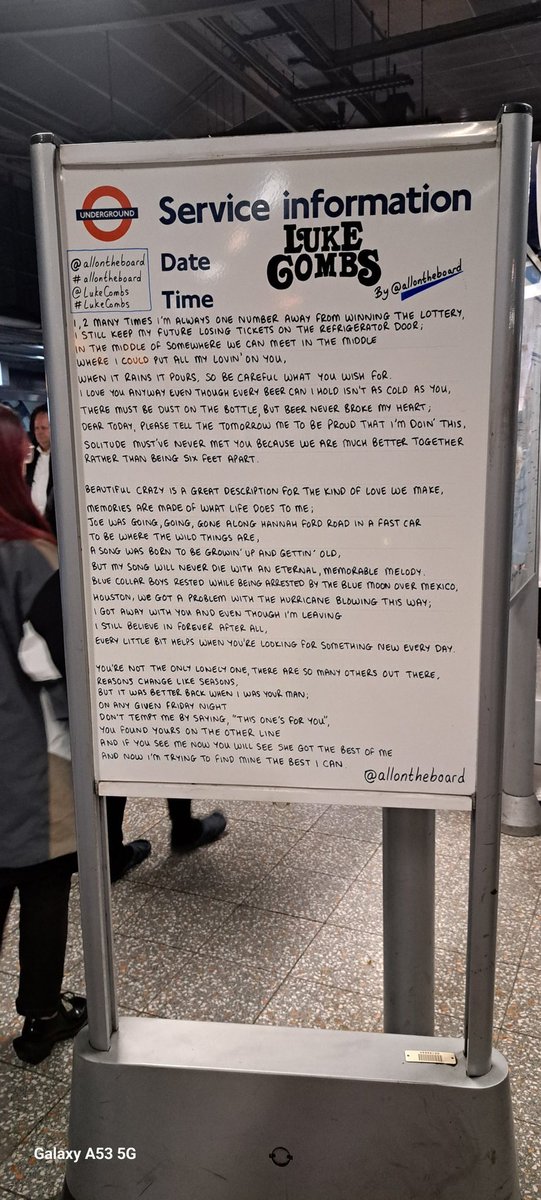 UNDERGROUND
Service information
LUKE
COMBS
@allontheboard
#allontheboard
@LukeCombs
#LukeCombs
Date
Time
By @allontheboard
1,2 MANY TIMES I'M ALWAYS ONE NUMBER AWAY FROM WINNING THE LOTTERY,
I STILL KEEP MY FUTURE LOSING TICKETS ON THE REFRIGERATOR DOOR;
IN THE MIDDLE OF SOMEWHERE WE CAN MEET IN THE MIDDLE
WHERE I COULD PUT ALL MY LOVIN' ON YOU,
WHEN IT RAINS IT POURS, SO BE CAREFUL WHAT YOU WISH FOR.
I LOVE YOU ANYWAY EVEN THOUGH EVERY BEER CAN I HOLD ISN'T AS COLD AS YOU,
THERE MUST BE DUST ON THE BOTTLE, BUT BEER NEVER BROKE MY HEART;
DEAR TODAY, PLEASE TELL THE TOMORROW ME TO BE PROUD THAT I'M DOIN' THIS,
SOLITUDE MUST'VE NEVER MET YOU BECAUSE WE ARE MUCH BETTER TOGETHER
RATHER THAN BEING SIX FEET APART.
BEAUTIFUL CRAZY IS A GREAT DESCRIPTION FOR THE KIND OF LOVE WE MAKE,
MEMORIES ARE MADE OF WHAT LIFE DOES TO ME;
JOE WAS GOING, GOING, GONE ALONG HANNAH FORD ROAD IN A FAST CAR
TO BE WHERE THE WILD THINGS ARE,
A SONG WAS BORN TO BE GROWIN' UP AND GETTIN' OLD,
BUT MY SONG WILL NEVER DIE WITH AN ETERNAL, MEMORABLE MELODY.
BLUE COLLAR BOYS RESTED WHILE BEING ARRESTED BY THE BLUE MOON OVER MEXICO,
HOUSTON, WE GOT A PROBLEM WITH THE HURRICANE BLOWING THIS WAY;
I GOT AWAY WITH YOU AND EVEN THOUGH I'M LEAVING
I STILL BELIEVE IN FOREVER AFTER ALL,
EVERY LITTLE BIT HELPS WHEN YOU'RE LOOKING FOR SOMETHING NEW EVERY DAY.
YOU'RE NOT THE ONLY LONELY ONE, THERE ARE SO MANY OTHERS OUT THERE,
REASONS CHANGE LIKE SEASONS,
BUT IT WAS BETTER BACK WHEN I WAS YOUR MAN;
ON ANY GIVEN FRIDAY NIGHT
DON'T TEMPT ME BY SAYING, "THIS ONE'S FOR YOU",
YOU FOUND YOURS ON THE OTHER LINE
AND IF YOU SEE ME NOW YOU WILL SEE SHE GOT THE BEST OF ME
AND NOW I'M TRYING TO FIND MINE THE BEST I CAN.
@allontheboard
Galaxy A53 5G